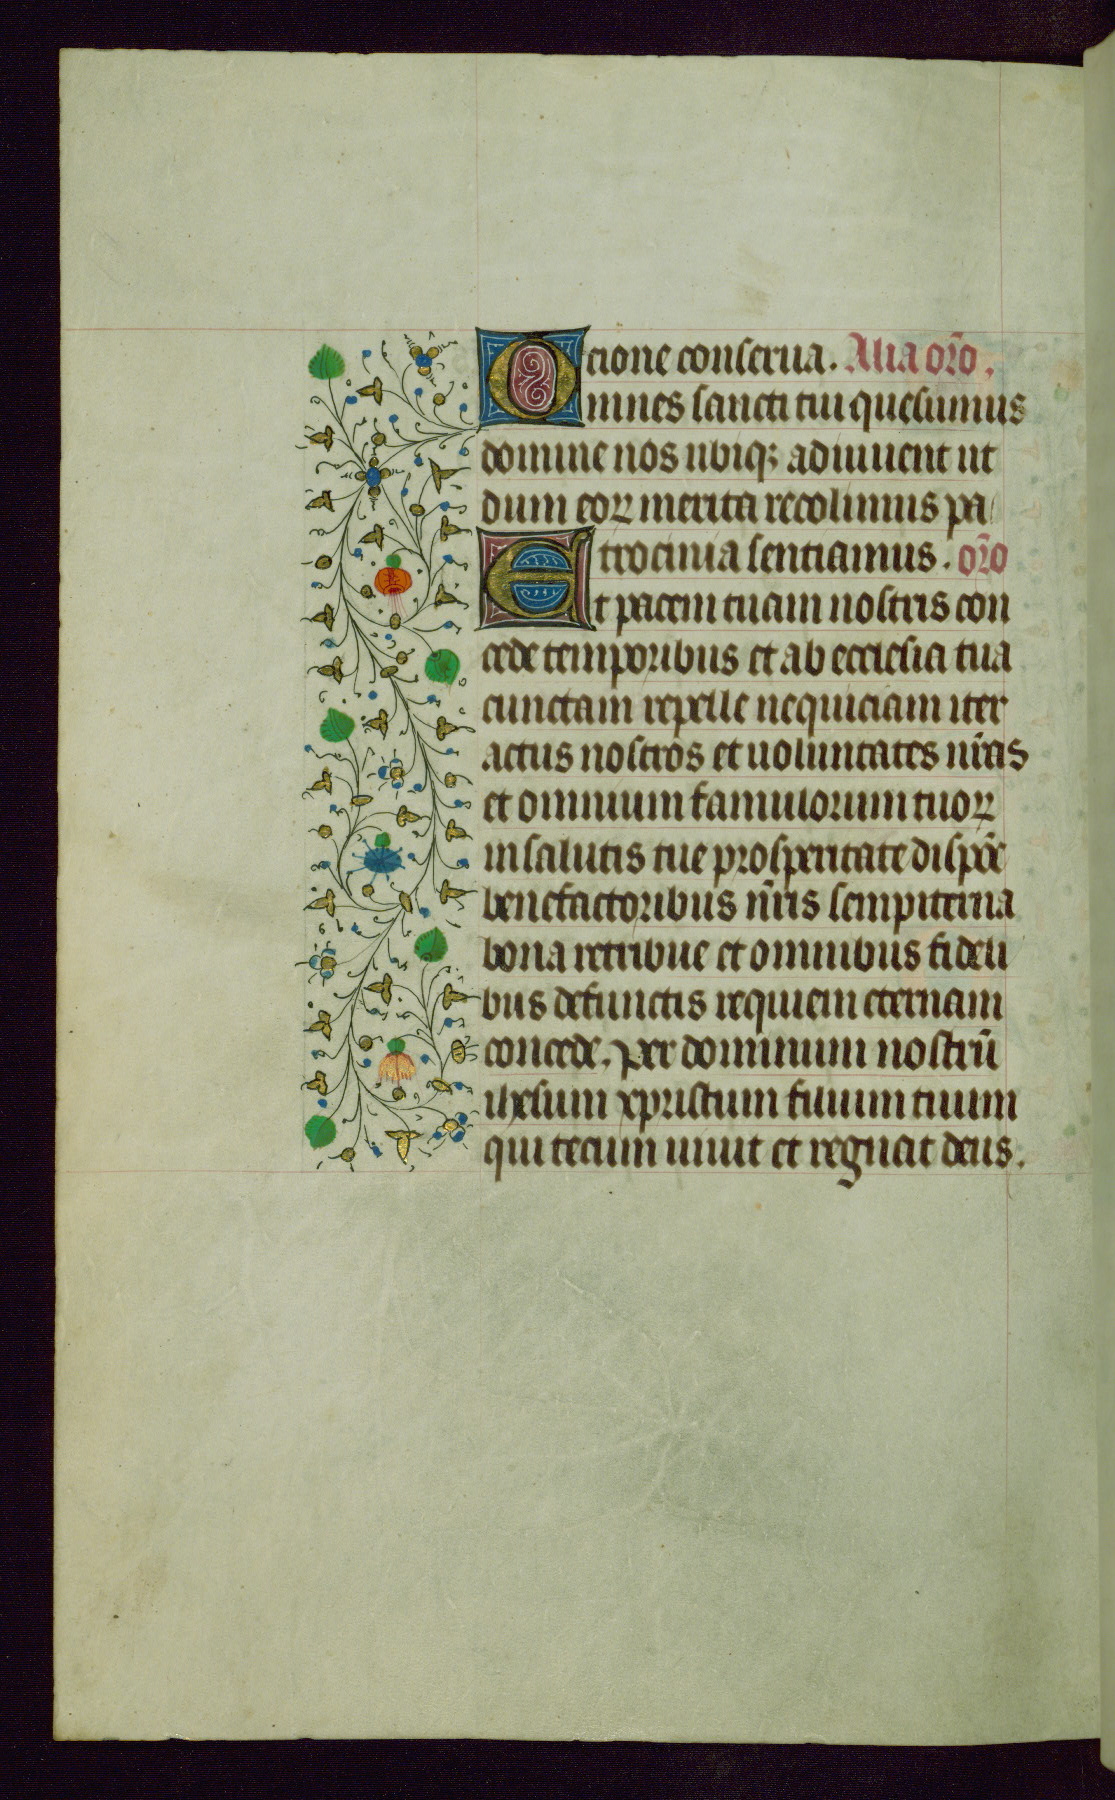 cione conserua. Alia or̃o.
Omnes sancti tui quesumus
domine nos ubiqꝫ adiuuent ut
dum eoꝝ merita recolimus pa
trocinia sentiamus. or̃o
Et pacem tuam nostris con
cede temporibus et ab ecclesia tua
cunctam repelle nequiciam iter
actus nostros et uoluntates nr̃as
et omnium famulorum tuoꝝ
in salutis tue prosperitate dispõe
benefactoribus nr̃is sempiterna
bona retribue et omnibus fideli
bus defunctis requiem eternam
concede. Per dominum nostrũ
ihesum xpristum filium tuum
qui tecum uiuit et regnat deus.